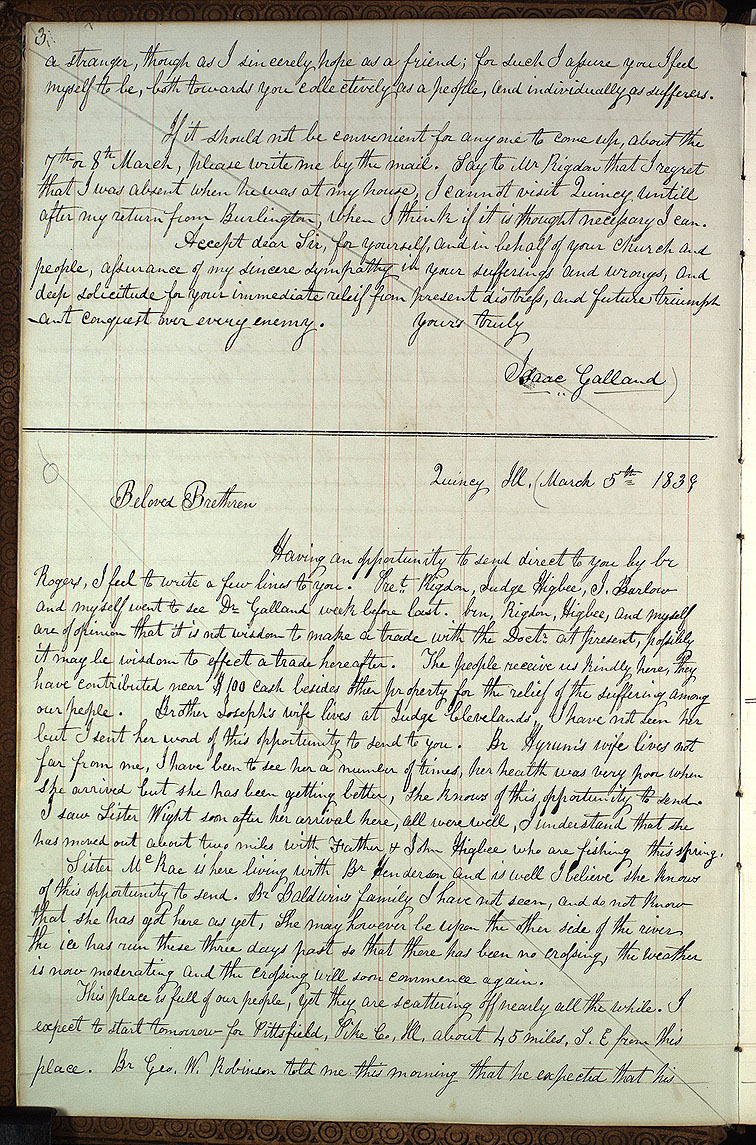 3.
a stranger, though as I sincerely hope as a friend; for such I assure you I feel
myself to be, both towards you collectively as a people, and individually as sufferers.
If it should not be convenient for any one to come up, about the
7th or 8th March, please write me by the mail. Say to Mr Rigdon that I regret
that I was absent when he was at my house, I cannot visit Quincy, untill
after my return from Burlington, when I think if it is thought necessary I can.
Accept dear Sir, for yourself, and in behalf of your Church and
people, assurance of my sincere sympathy in your sufferings and wrongs, and
deep solicitude for your immediate releif from present distress, and future triumph
ant conquest over every enemy. yours truly
Isaac Galland)
Quincy Ill, (March 5th 1839
Beloved Brethren
Having an opportunity to send direct to you by br
Rogers, I feel to write a few lines to you. Prest Rigdon, Judge Higbee, I. Barlow
and myself went to see Dr Galland week before last. brn, Rigdon, Higbee, and myself
are of opinion that it is not wisdom to make a trade with the Doctr at present, possibly
it may be wisdom to effect a trade hereafter. The people receive us kindly here, they
have contributed near $100 cash besides other property for the relief of the suffering among
our people. Brother Joseph's wife lives at Judge Clevelands, I have not seen her
but I sent her word of this opportunity to send to you. Br Hyrum's wife lives not
far from me, I have been to see her a number of times, her health was very poor when
she arrived but she has been getting better, she knows of this opportunity to send.
I saw Sister Wight soon after her arrival here, all were well, I understand that she
has moved out about two miles with Father & John Higbee who are fishing this spring.
Sister McRae is here living with Br Henderson and is well I believe she knows
of this opportunity to send. Br Baldwins family I have not seen, and do not know
that she has got here as yet, She may however be upon the other side of the river
the ice has run these three days past so that there has been no crossing, the weather
is now moderating and the crossing will soon commence again.
This place is full of our people, yet they are scattering off nearly all the while. I
expect to start tomorrow for Pittsfield, Pike Co, Ill, about 45 miles, S. E from this
place. Br Geo. W. Robinson told me this morning that he expected that his